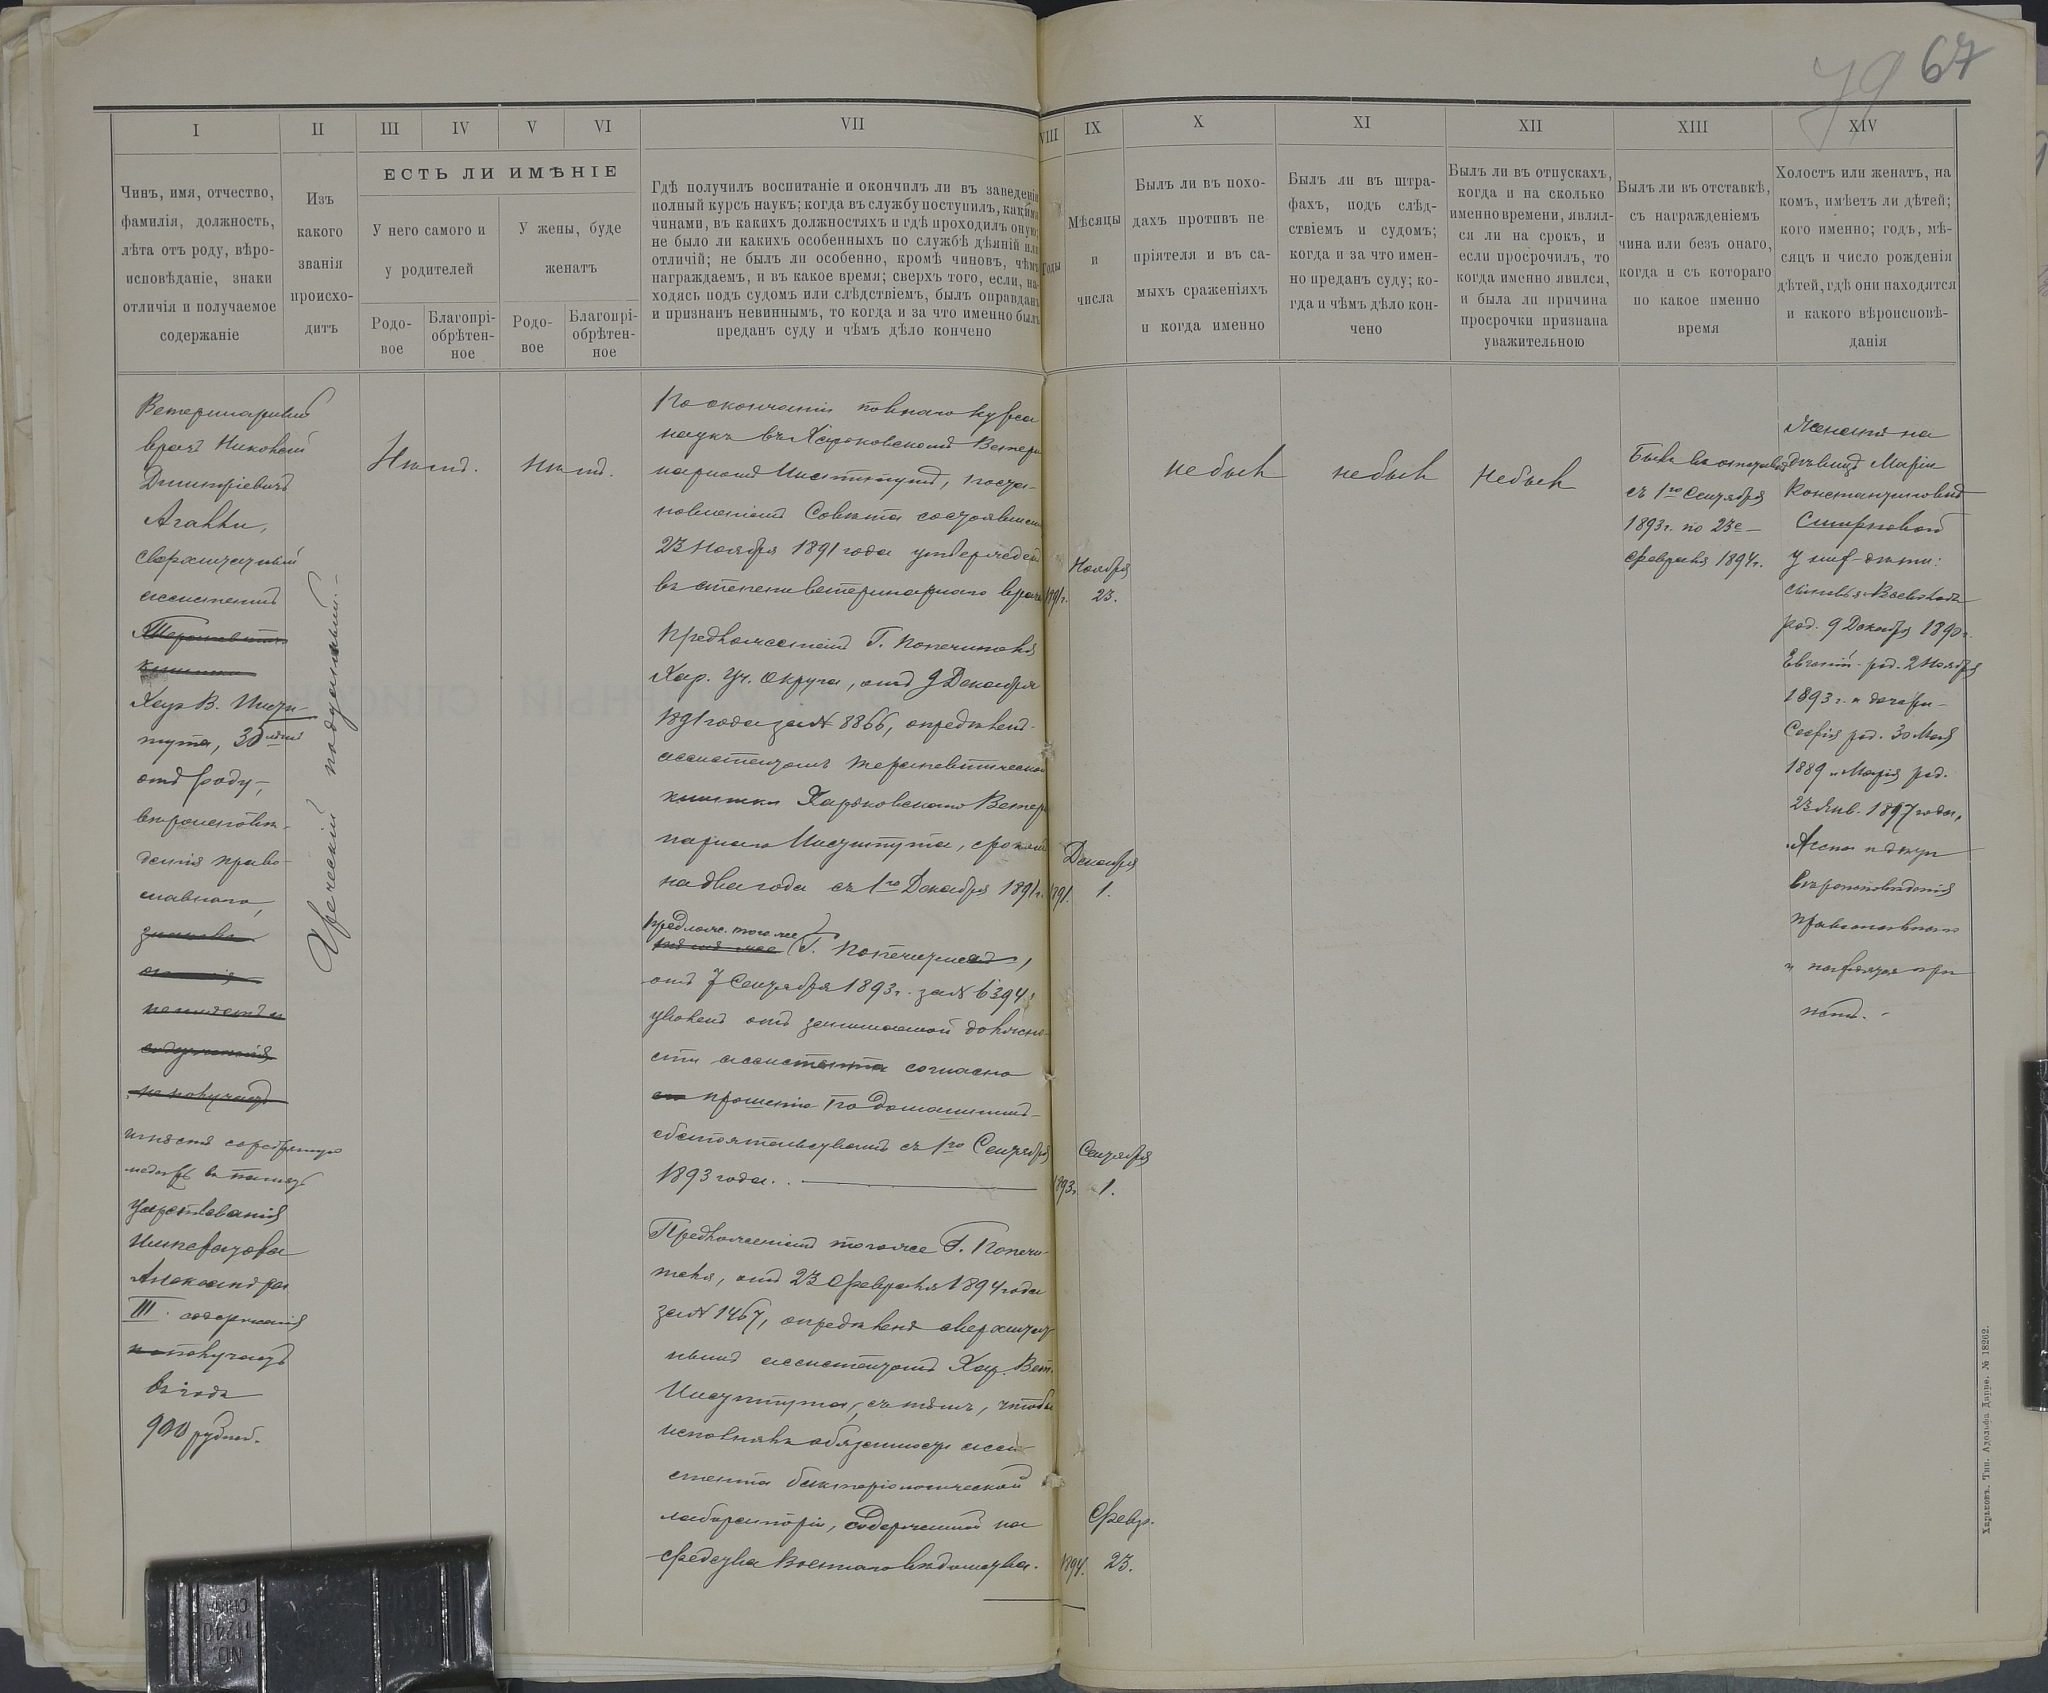 79 67
I
II
III
IV
V
VI
VII
VIII
IX
X
XI
XII
XIII
XIV
Чинъ, имя, отчество,
фамилія, должность,
лѣта отъ роду, вѣро-
исповѣданіе, знаки
отличія и получаемое
содержаніе
Изъ
какого
званія
происхо-
дитъ
ЕСТЬ ЛИ ИМѢНІЕ
У него самого и
у родителей
У жены, буде
женатъ
Родо-
вое
Благопрі-
обрѣтен-
ное
Родо-
вое
Благопрі-
обрѣтен-
ное
Гдѣ получилъ воспитаніе и окончилъ ли въ заведеніи
полный курсъ наукъ; когда въ службу поступилъ, какими
чинами, въ какихъ должностяхъ и гдѣ проходилъ оную;
не было ли какихъ особенныхъ по службѣ дѣяній или
отличій; не былъ ли особенно, кромѣ чиновъ, чѣмъ
награждаемъ, и въ какое время; сверхъ того, если, на-
ходясь подъ судомъ или слѣдствіемъ, былъ оправданъ
и признанъ невиннымъ, то когда и за что именно былъ
преданъ суду и чѣмъ дѣло кончено
Годы
Мѣсяцы
и
числа
Былъ ли въ похо-
дахъ противъ не-
пріятеля и въ са-
мыхъ сраженіяхъ
и когда именно
Былъ ли въ штра-
фахъ, подъ слѣд-
ствіемъ и судомъ;
когда и за что имен-
но преданъ суду; ко-
гда и чѣмъ дѣло кон-
чено
Былъ ли въ отпускахъ,
когда и на сколько
именно времени, являл-
ся ли на срокъ, и
если просрочилъ, то
когда именно явился,
и была ли причина
просрочки признана
уважительною
Былъ ли въ отставкѣ,
съ награжденіемъ
чина или безъ онаго,
когда и съ котораго
по какое именно
время
Холостъ или женатъ, на
комъ, имѣетъ ли дѣтей;
кого именно; годъ, мѣ-
сяцъ и число рожденія
дѣтей, гдѣ они находятся
и какого вѣроисповѣ-
данія
Ветеринарный
врачъ Николай
Дмитріевичъ
Агалли,
сверхштатный
ассистентъ
Терапевтич.
клиники
Хар. В. Инсти-
тута, 35 лѣтъ
отъ роду,
вѣроисповѣ-
данія право-
славнаго,
знаковъ
отличія
не имѣетъ и
содержанія
не получаетъ
имѣетъ серебряную
медаль въ память
Царствованія
Императора
Александра
III. содержанія
не получаетъ
въ годъ
900 рублей.
Греческій подданный.
Нѣтъ.
Нѣтъ.
По окончаніи полнаго курса
наукъ въ Харьковскомъ Ветери
нарномъ Институтѣ, поста-
новленіемъ Совѣта состоявшимся
23 Ноября 1891 года утвержденъ
въ степени ветеринарнаго врача
1891 г.
Ноября
23.
Предложеніемъ Г. Попечителя
Хар. Уч. Округа, отъ 9 Декабря
1891 года за № 8866, опредѣленъ
ассистентомъ терапевтической
клиники Харьковскаго Ветери
нарнаго Института, срокомъ
на два года съ 1го Декабря 1891 г.
1891.
Декабря
1.
Предлож. того же
Г. Попечителя,
отъ 7 Сентября 1893 г. за № 6394,
уволенъ отъ занимаемой должно-
сти ассистента согласно
прошенію по домашнимъ
обстоятельствамъ съ 1го Сентября
1893 года.
1893 г.
Сентября
1.
Предложеніемъ того же Г. Попечи-
теля, отъ 23 Февраля 1894 года
за № 1467, опредѣленъ сверхштат
нымъ ассистентомъ Хар. Вет.
Института, съ тѣмъ, чтобы
исполнялъ обязанности асси
стента бактеріологической
лабораторіи, содержимой на
средства Военнаго вѣдомства.
1894.
Февр.
23.
не былъ
не былъ
не былъ
Былъ въ отставкѣ
съ 1го Сентября
1893 г. по 23е
Февраля 1894 г.
Женатъ на
дѣвицѣ Маріи
Константиновнѣ
Смирновой
у нихъ дѣти:
сыновья Всеволодъ
род. 9 Декабря 1890 г.
Евгеній род. 2 Ноября
1893 г. и дочери
Софія род. 30 Мая
1889 и Марія род.
23 Янв. 1897 года,
Жена и дѣти
вѣроисповѣданія
православнаго
и находятся при
немъ.
Харьковъ. Тип. Адольфа Дарре. № 18262.